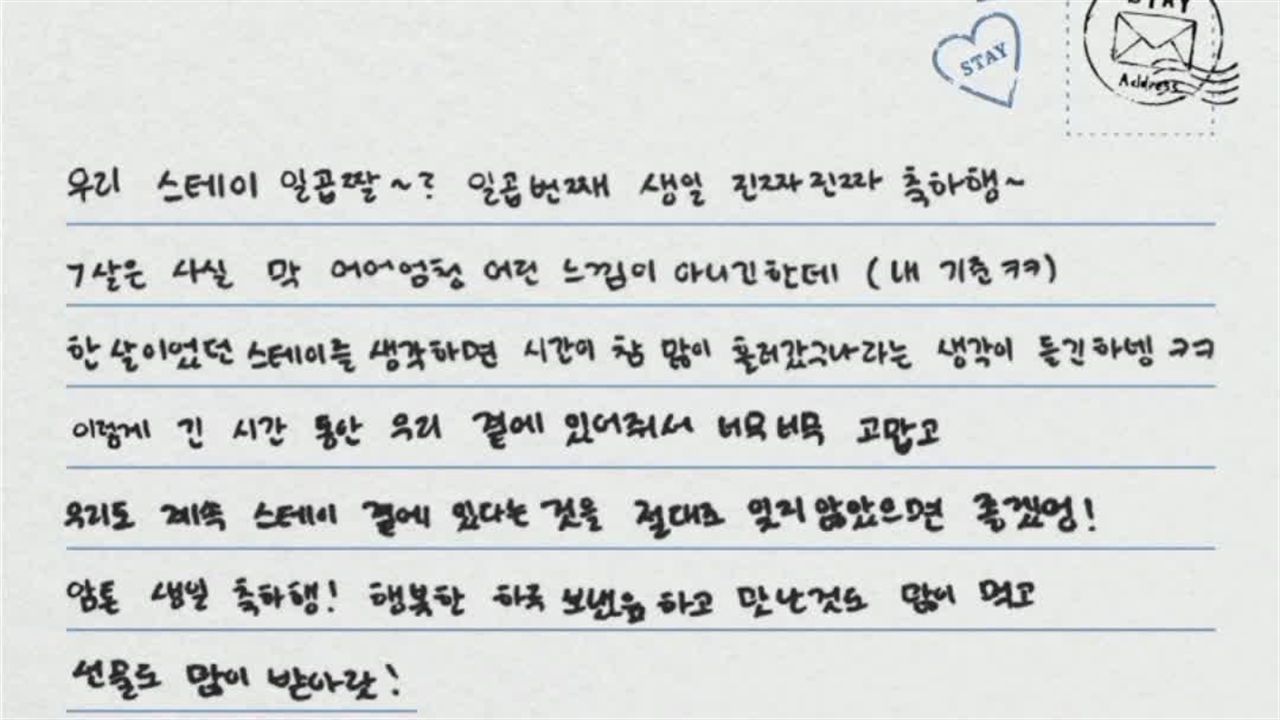 STAY
STAY
Address
우리 스테이 일곱짤~? 일곱번째 생일 진짜진짜 축하행~
7살은 사실 막 어어엄청 어린 느낌이 아니긴한데 (내 기준 ㅋㅋ)
한살이었던 스테이를 생각하면 시간이 참 많이 흘러갔구나라는 생각이 들긴하넹 ㅋㅋ
이렇게 긴 시간 동안 우리 곁에 있어줘서 너무너무 고맙고
우리도 계속 스테이 곁에 있다는 것을 절대로 잊지않았으면 좋겠엉!
암튼 생일 축하행! 행복한 하루 보냈음 하고 맛난것도 많이 먹고
선물도 많이 받아랏!